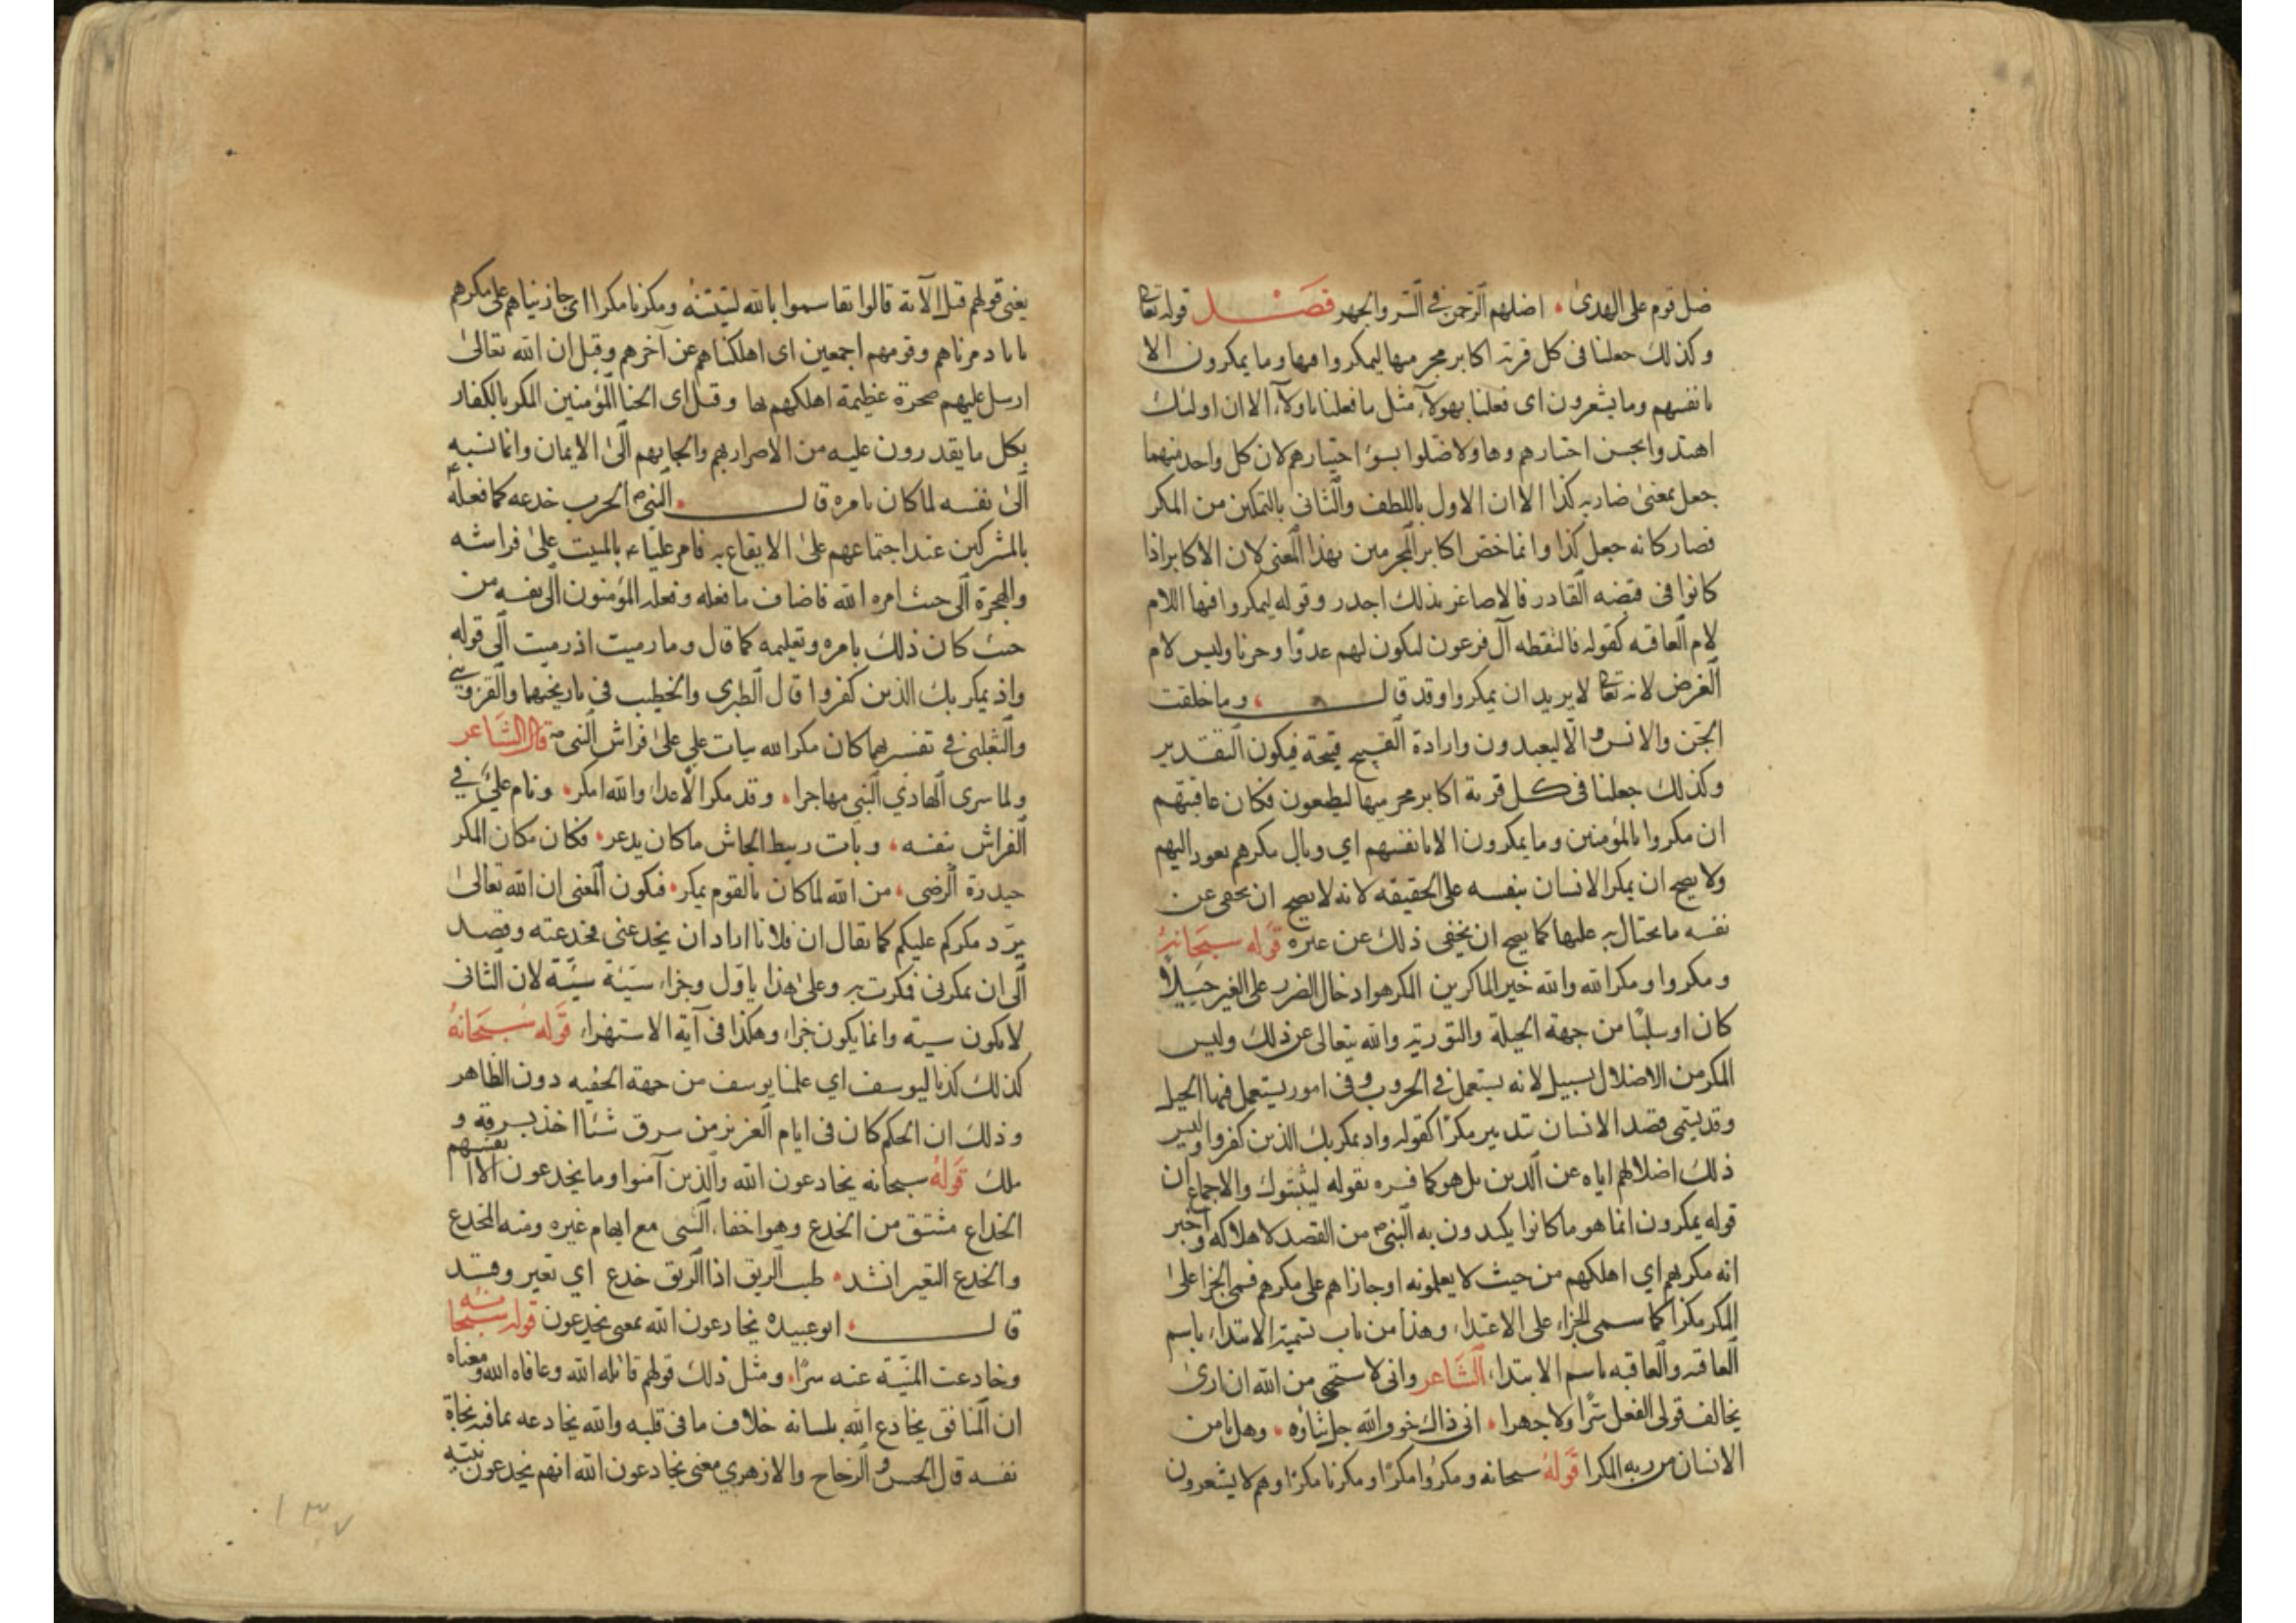 ضل قوم على الهدى اضلهم الرحمن في السر والجهر فصل قوله تعا
وكذلك جعلنا فى كل قرية اكابر مجرميها ليمكروا فيها وما يمكرون الا
بانفسهم وما يشعرون اى فعلنا بهولاء مثل ما فعلنا باولاء الا ان اولئك
اهتدوا بحسن اختيارهم وهاولا ضلوا بسوء اختيارهم لان كل واحد منهما
جعل بمعنى ضار به كذا الا ان الاول باللطف والثانى بالتمكين من المكر
فصار كانه جعل كذا وانما خص اكابر المجرمين بهذا المعنى لان الاكابر اذا
كانوا فى قبضه القادر فالاصاغر بذلك اجدر وقوله ليمكروا فيها اللام
لام العاقبه كقوله فالتقطه آل فرعون ليكون لهم عدوا وحزنا وليس لام
الغرض لانه تعا لا يريد ان يمكروا وقد قال وما خلقت
الجن والانس الا ليعبدون وارادة القبيح قبيحة فيكون التقدير
وكذلك جعلنا فى كل قرية اكابر مجرميها ليطيعون فكان عاقبتهم
ان مكروا بالمؤمنين وما يمكرون الا بانفسهم اي وبال مكرهم يعود اليهم
ولا يصح ان يمكر الانسان بنفسه على الحقيقه لانه لا يصح ان يخفى عن
نفسه ما يحتال به عليها كما يصح ان يخفى ذلك عن غيره قوله سبحانه
ومكروا ومكر الله والله خير الماكرين المكر هو ادخال الضرر على الغير حيلا
كان او سلبًا من جهة الحيلة والتورية والله يتعالى عن ذلك وليس
المكر من الاضلال بسبيل لانه يستعمل في الحروب وفى امور يستعمل فيها الحيل
وقد يسمى قصد الانسان تدبير مكرًا كقوله واذ يمكر بك الذين كفروا وليس
ذلك اضلالهم اياه عن الدين بل هو كما فسره بقوله ليثبتوك والاجماع ان
قوله يمكرون انما هو ما كانوا يكيدون به النبي من القصد لاهلاكه واخبر
انه مكر بهم اي اهلكهم من حيث لا يعلمونه او جازاهم على مكرهم فسمى الجزا على
المكر مكرًا كما سمى الجزاء على الاعتداء وهذا من باب تسمية الابتداء باسم
العاقبه والعاقبه باسم الابتداء الشاعر وانى لاستحي من الله ان ارى
يخالف قولى الفعل سرًا ولا جهرا انى ذاك خو والله جل ثناؤه وهل يامن
الانسان من ربه المكرا قوله سبحانه ومكروا مكرًا ومكرنا مكرًا وهم لا يشعرون
يعنى قولهم قبل الآية قالوا تقاسموا بالله لنبيتنه ومكرنا مكرا اى جازيناهم على مكرهم
بانا دمرناهم وقومهم اجمعين اى اهلكناهم عن آخرهم وقيل ان الله تعالى
ارسل عليهم صخرة عظيمة اهلكهم بها وقيل اى الحنا المؤمنين المكر بالكفار
بكل ما يقدرون عليه من الاضرار بهم والجايهم الى الايمان وانما نسبه
الى نفسه لما كان بامره قال النبي الحرب خدعه كما فعله
بالمشركين عند اجتماعهم على الايقاع به فامر عليا ء بالمبيت على فراشه
والهجرة الى حيث امره الله فاضاف ما فعله وفعله المؤمنون الى نفسه من
حيث كان ذلك بامره وتعليمه كما قال وما رميت اذ رميت الى قوله
واذ يمكر بك الذين كفروا قال الطبرى والخطيب فى تاريخيهما والقزويني
والثعلبى في تفسيرهما كان مكر الله بيات علي على فراش النبي قال الشاعر
ولما سرى الهادي النبي مهاجرا وقد مكر الاعداء والله امكر ونام علي في
الفراش بنفسه وبات ربيط الجاش ما كان يدعر فكان مكان المكر
حيدرة الرضى من الله لما كان بالقوم يمكر فيكون المعنى ان الله تعالى
يرد مكركم عليكم كما يقال ان فلانا اراد ان يخدعنى فخدعته وقصد
الى ان يمكرنى فمكرت به وعلى هذا ياول وجزاء سيئة سيئة لان الثانى
لا يكون سيئه وانما يكون جزاء وهكذا فى آية الاستهزاء قوله سبحانه
كذلك كدنا ليوسف اي علمنا يوسف من جهة الخفيه دون الظاهر
وذلك ان الحكم كان فى ايام العزيز من سرق شئا اخذ بسرقه و
ملك قوله سبحانه يخادعون الله والذين آمنوا وما يخدعون الا انفسهم
الخداع مشتق من الخدع وهو اخفاء الشى مع ايهام غيره ومنه المخدع
والخدع التغير انشد طيب الريق اذا الريق خدع اي تغير وقد
قال ابو عبيده يخادعون الله بمعنى يخدعون قوله سبحانه
وخادعت المنية عنه سرًا ومثل ذلك قولهم قاتله الله وعافاه الله ومعناه
ان المنافق يخادع الله بلسانه خلاف ما فى قلبه والله يخادعه بما فيه نجاة
نفسه قال الحسن والزجاج والازهري معنى يخادعون الله انهم يخدعون نبيه
١٣٧